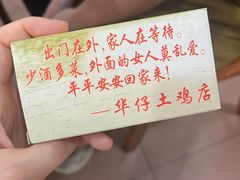 出门在外,家人在等待。
少酒多菜,外面的女人莫乱爱。
平平安安回家来!
—华仔土鸡店